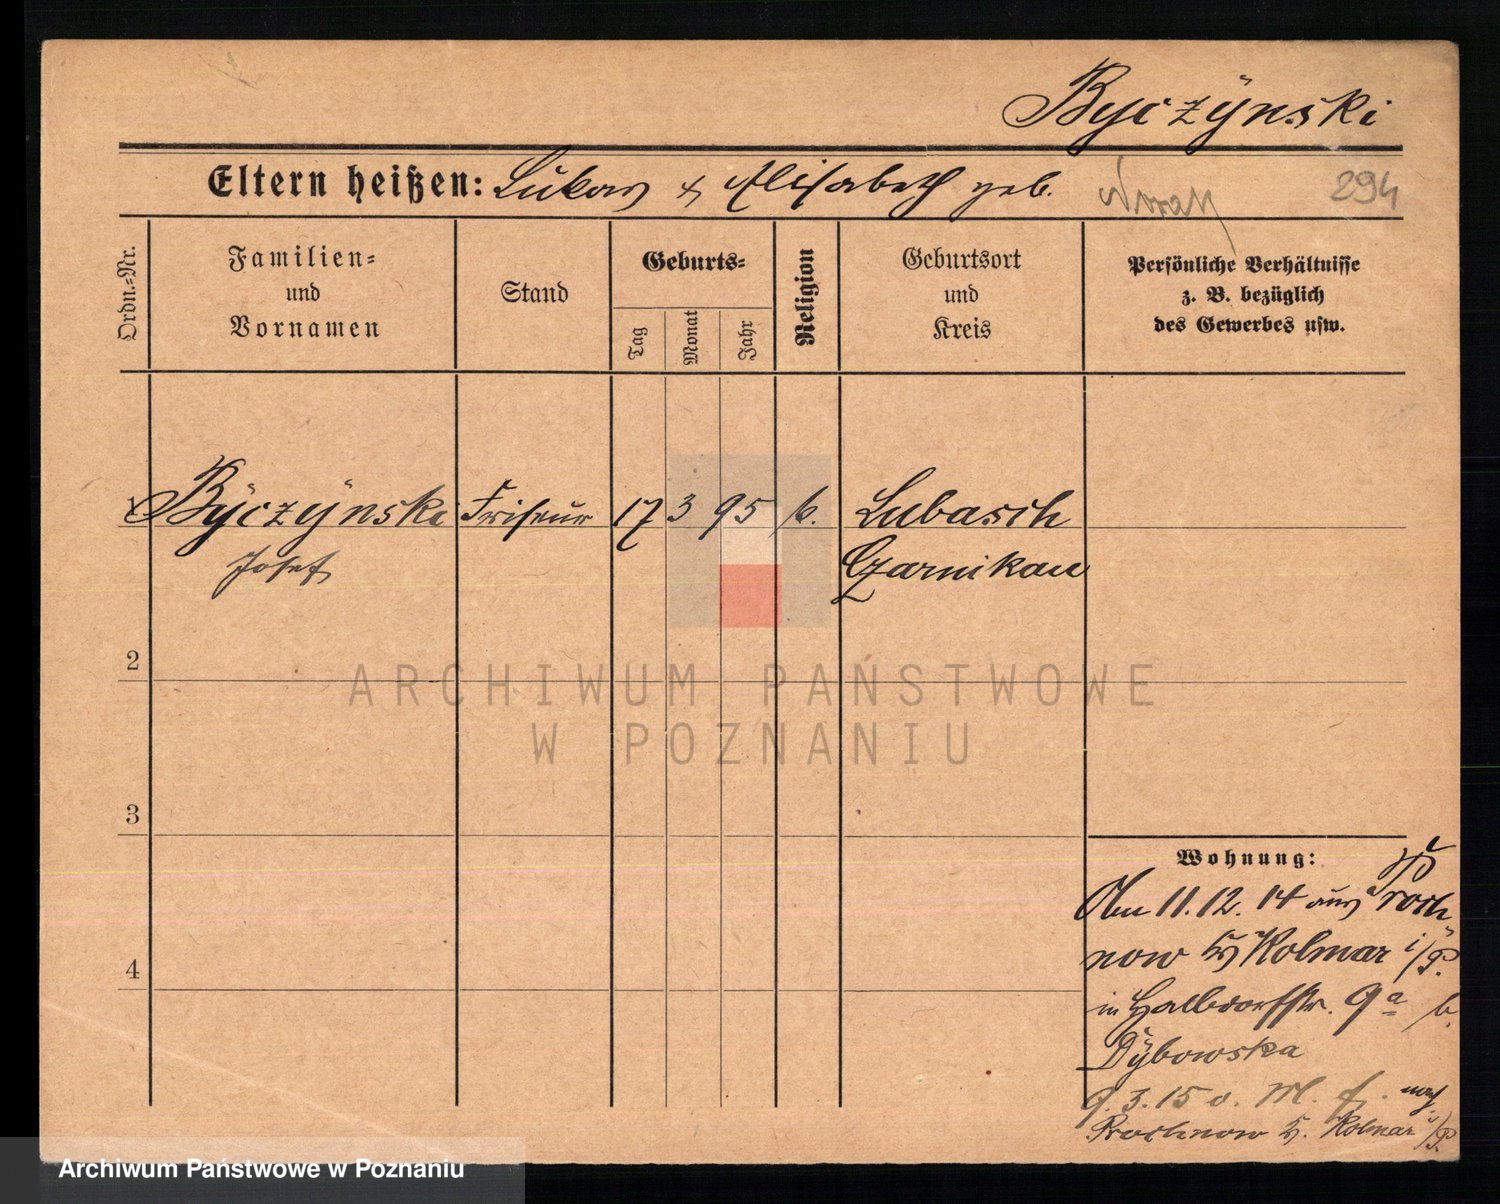 Byczÿnski
Eltern heißen: Lukas & Elisabeth geb. Nowak 294
Ordn.-Nr.
Familien-
und
Vornamen
Stand
Geburts-
Tag
Monat
Jahr
Religion
Geburtsort
und
Kreis
Persönliche Verhältnisse
z. B. bezüglich
des Gewerbes usw.
1 Bÿczÿnski Friseur 17 3 95 k. Lubasch
Josef Czarnikau
2
3
4
Wohnung:
Am 11.12.14 aus Proch
now Kr Kolmar i/P.
in Halbdorfstr. 9a b.
Dÿbowska
9.3.15 v. M. f. nach
Prochnow Kr. Kolmar i/P.
ARCHIWUM PAŃSTWOWE
W POZNANIU
Archiwum Państwowe w Poznaniu